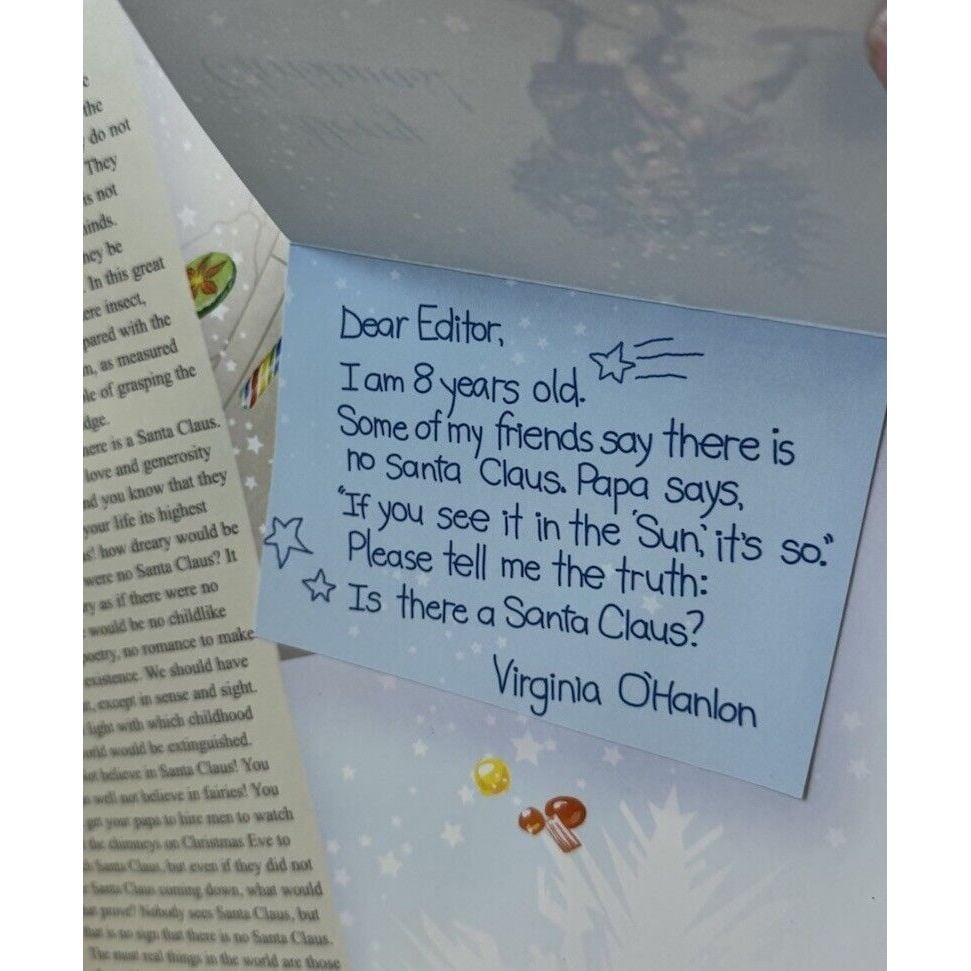 the
do not
They
is not
minds.
they be
In this great
insect,
pared with the
as measured
of grasping the
there is a Santa Claus.
love and generosity
you know that they
your life its highest
how dreary would be
were no Santa Claus? It
as if there were no
would be no childlike
poetry, no romance to make
existence. We should have
except in sense and sight.
light with which childhood
world would be extinguished.
not believe in Santa Claus! You
well not believe in fairies! You
get your papa to hire men to watch
the chimneys on Christmas Eve to
Santa Claus, but even if they did not
Santa Claus coming down, what would
that prove? Nobody sees Santa Claus, but
that is no sign that there is no Santa Claus.
The most real things in the world are those
Dear Editor,
I am 8 years old.
Some of my friends say there is
no Santa Claus. Papa says,
"If you see it in the 'Sun,' it's so."
Please tell me the truth:
Is there a Santa Claus?
Virginia O'Hanlon